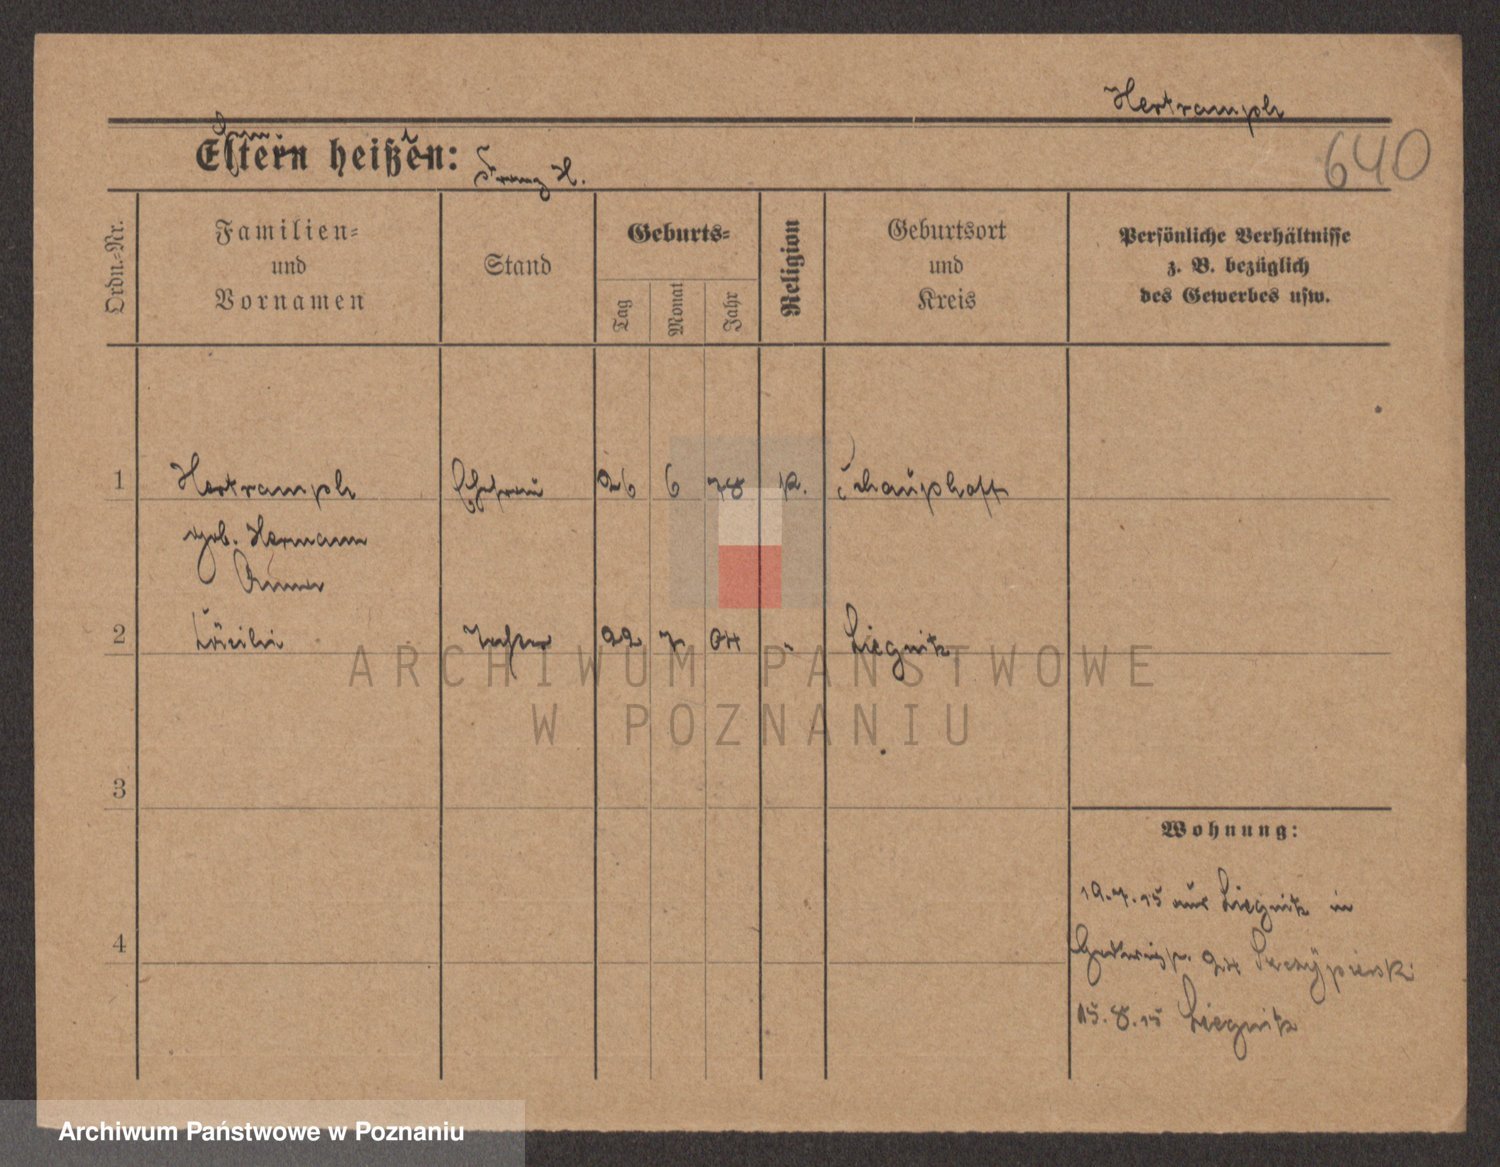 Hertramph
640
Eltern heißen:
Franz H.
Ordn.-Nr.
Familien-
und
Vornamen
Stand
Geburts-
Tag
Monat
Jahr
Religion
Geburtsort
und
Kreis
Persönliche Verhältnisse
z. B. bezüglich
des Gewerbes usw.
1 Hertramph Ehefrau 26 6 78 K.
geb. Hermann
Anna
2 Cäcilie Tochter 22 7 04 " Liegnitz
3
4
Wohnung:
19.7.15 aus Liegnitz in
24
15.8.15 Liegnitz
ARCHIWUM PAŃSTWOWE
W POZNANIU
Archiwum Państwowe w Poznaniu